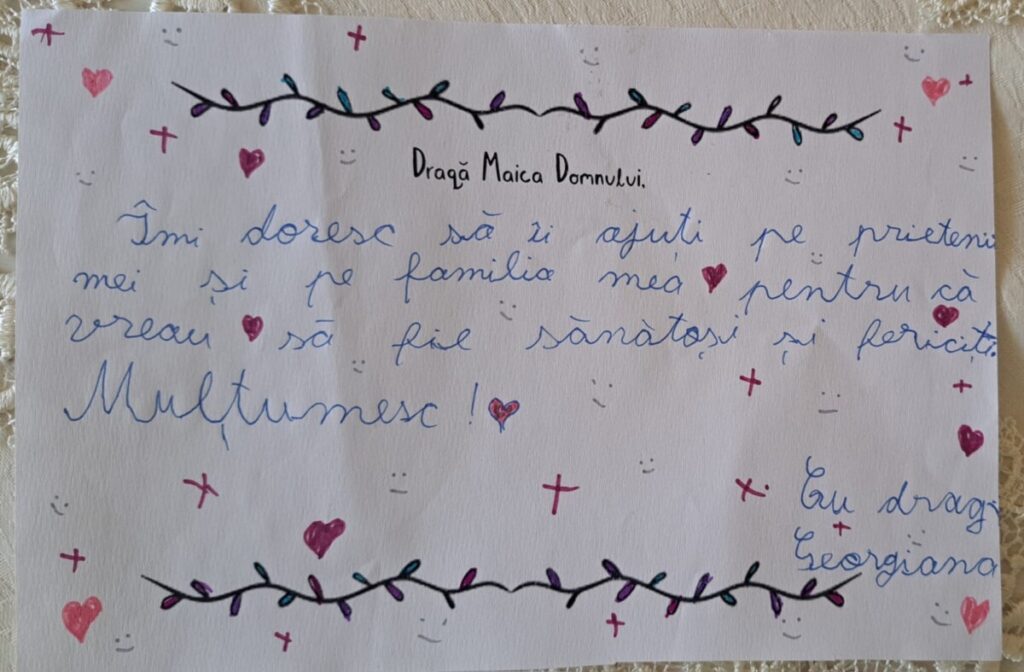 Dragă Maica Domnului,
Îmi doresc să îi ajuți pe prieteni
mei și pe familia mea pentru că
vreau să fie sănàtoși și fericiți.
Mulțumesc!
Cu drag,
Georgiana